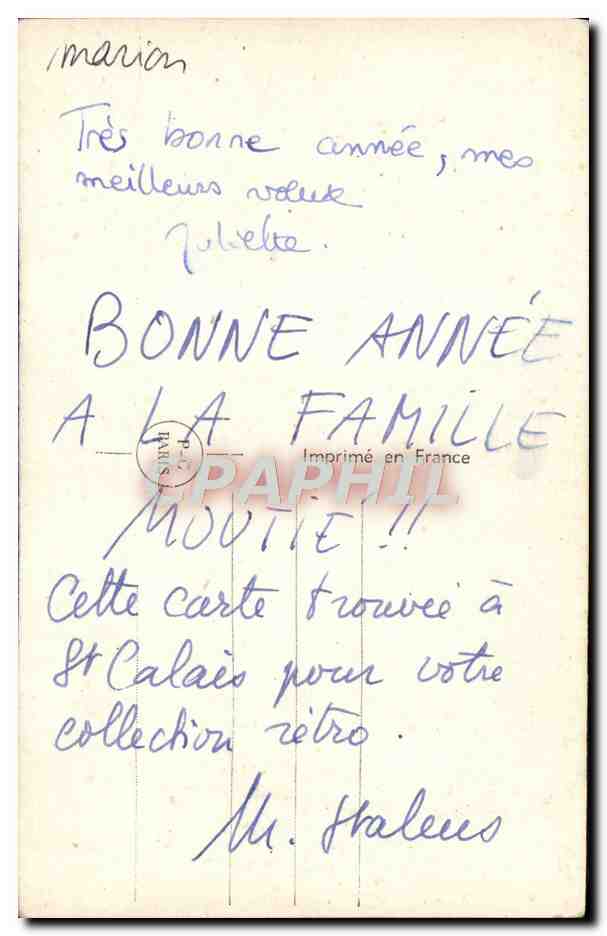 marion
Très bonne année, mes
meilleurs voeux
Juliette.
BONNE ANNÉE
A LA FAMILLE
P-C
PARIS
Imprimé en France
CPAPHIL
MOUTIE !!
Cette carte trouvée à
St Calais pour votre
collection rétro.
M. Stalens